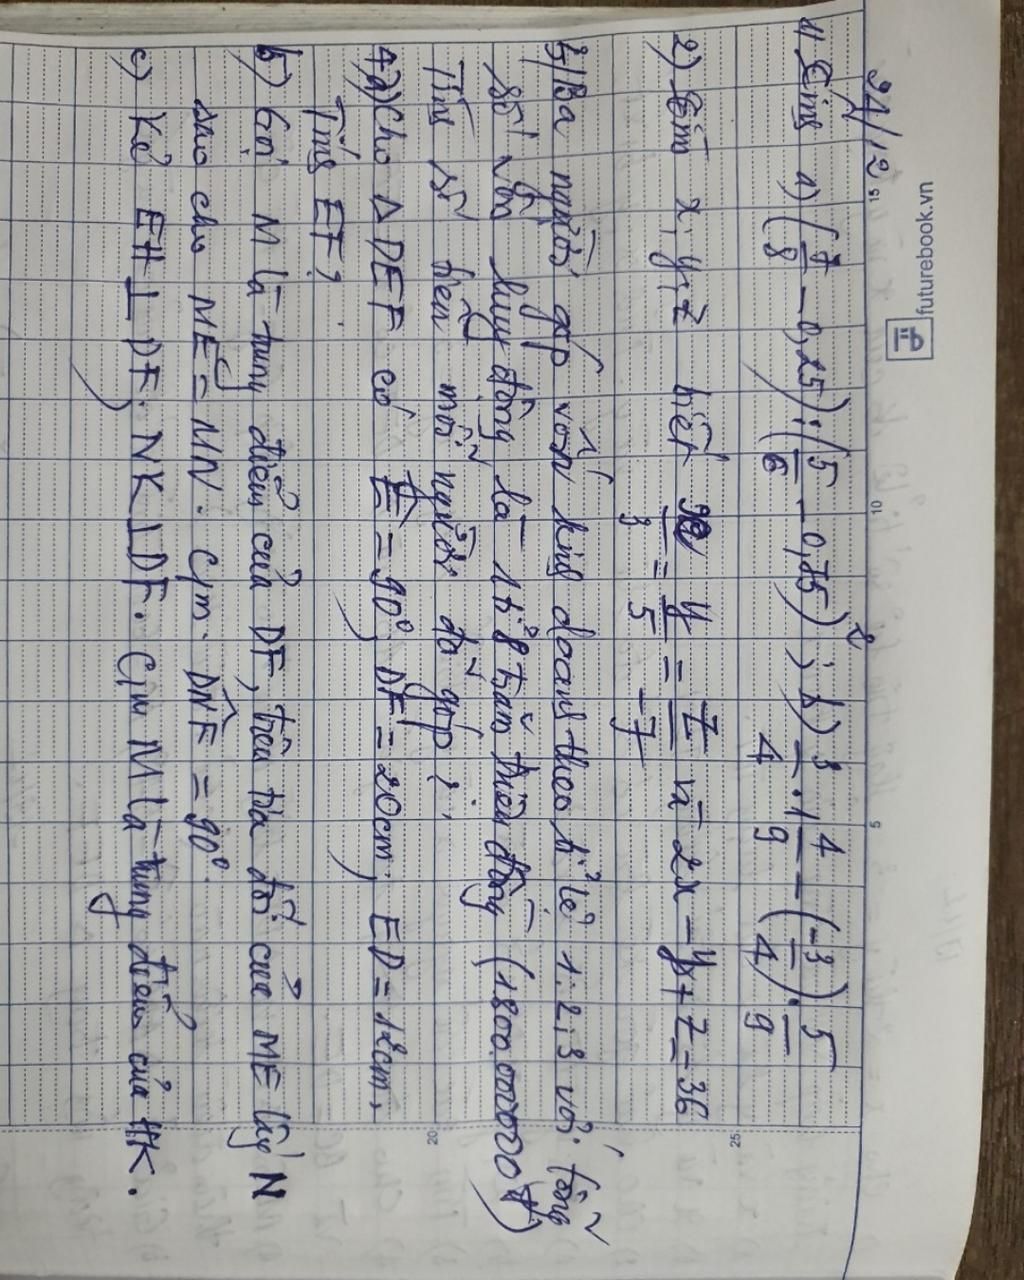 futurebook.vn
24/12
15 10 5
1) Tính a) (7/8 - 0,25) : (5/6 - 0,75)² ; b) 3/4 . 1 4/9 - (-3/4) . 5/9
25
2) Tìm x, y, z biết x/3 = y/5 = z/-7 và 2x - y + z = 36
3) Ba người góp vốn kinh doanh theo tỉ lệ 1:2:3 với tổng
số vốn huy động là 1 tỉ 8 trăm triệu đồng (1.800.000000đ)
Tính số tiền mỗi người đã góp ?
20
4 a) Cho Δ DEF có Ê = 90°, DF = 20cm, ED = 12cm,
Tính EF?
b) Gọi M là trung điểm của DF, trên tia đối của ME lấy N
sao cho ME = MN. C/m. DNF = 90°.
c) Kẻ EH ⊥ DF. NK ⊥ DF. C/m M là trung điểm của HK.